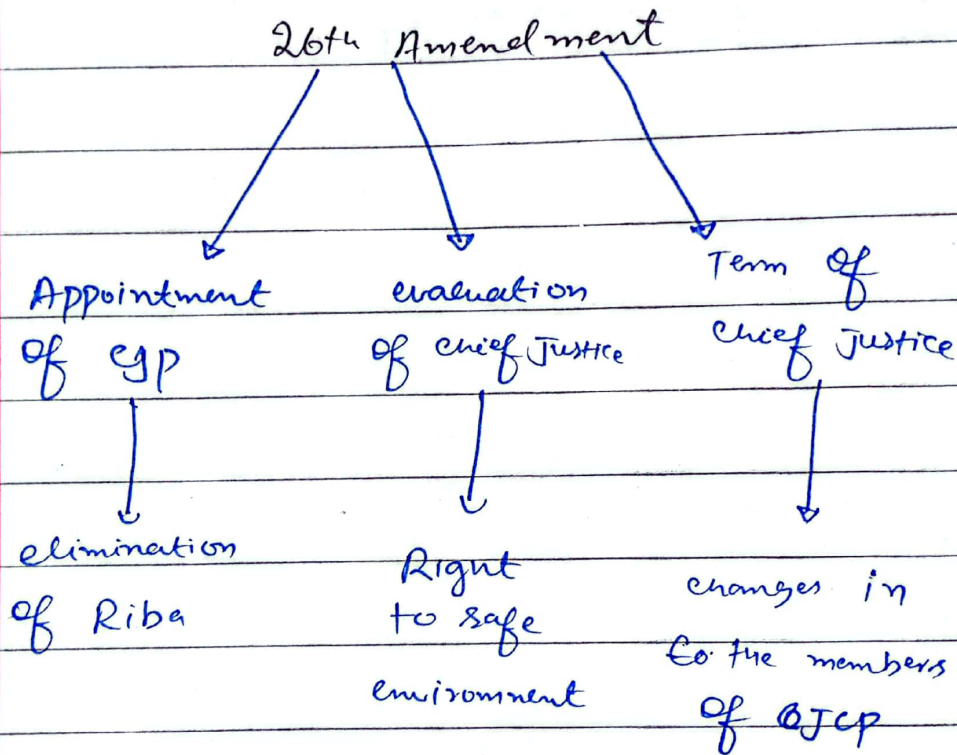 26th Amendment
Appointment
of CJP
evaluation
of chief Justice
Term of
chief Justice
elimination
of Riba
Right
to safe
environment
changes in
to the members
of JCP